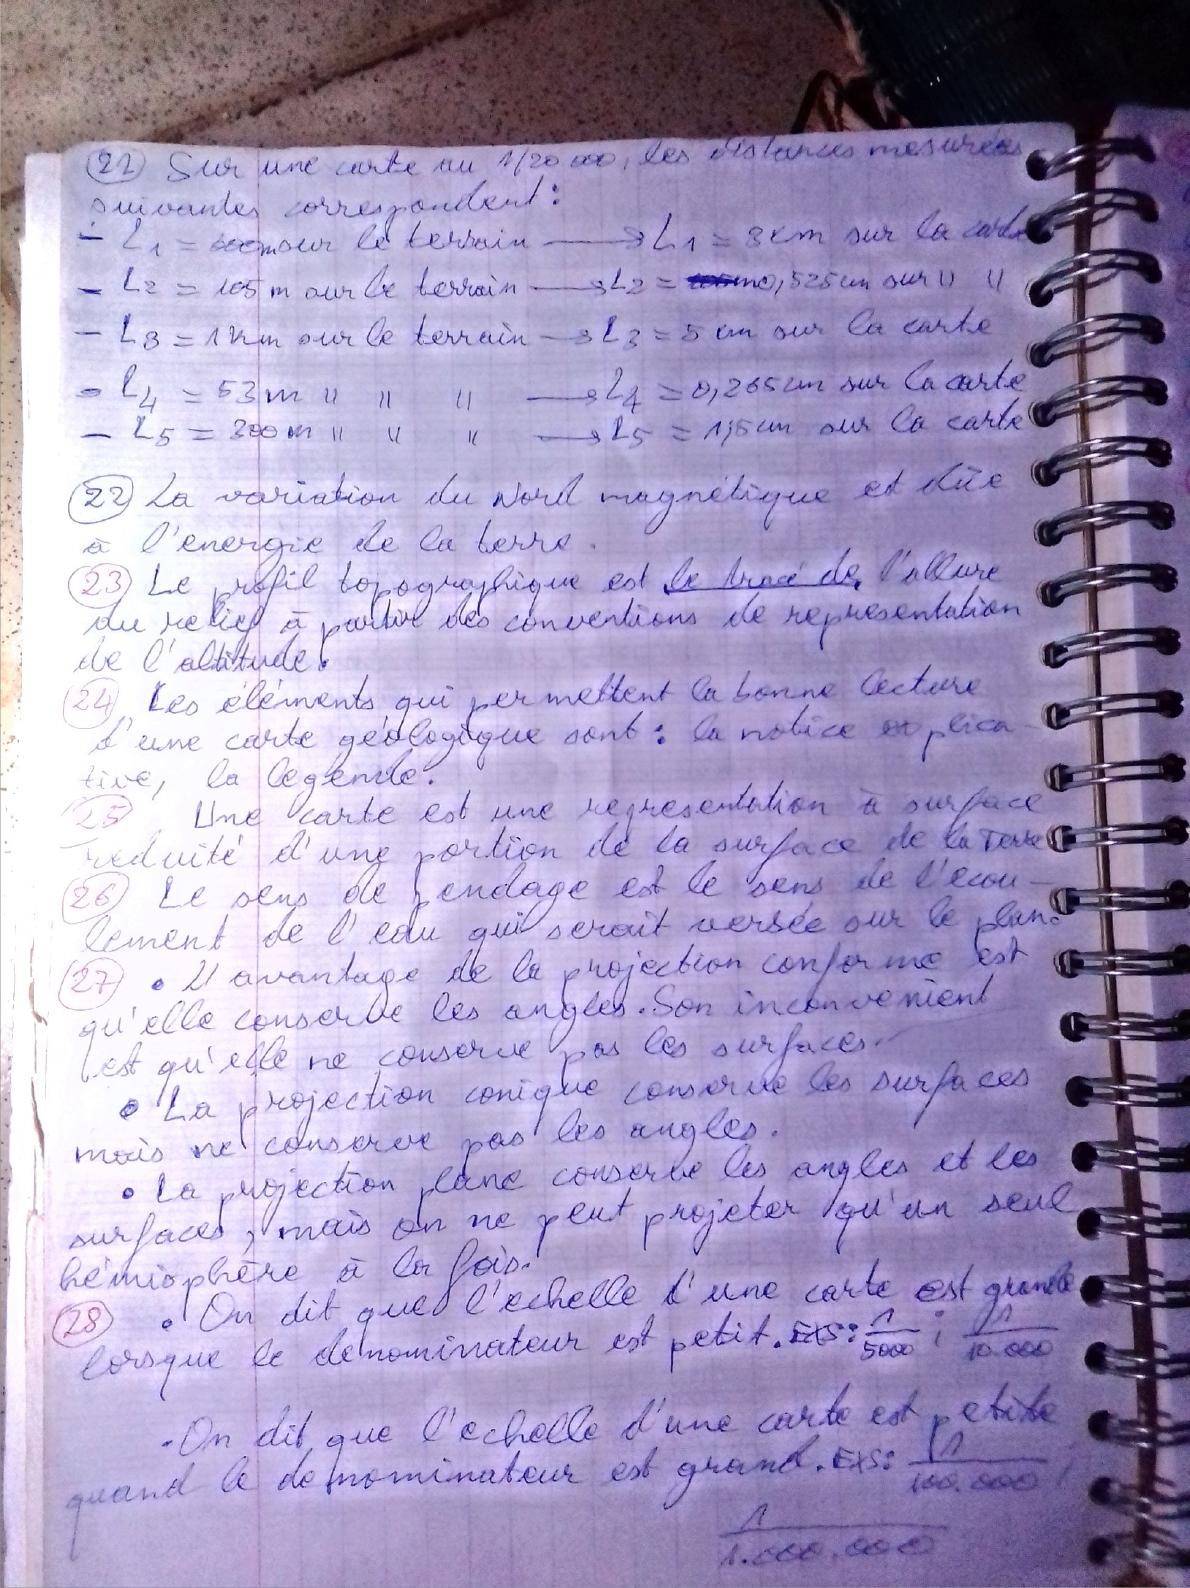 21 Sur une carte au 1/20 000, les distances mesurées
suivantes correspondent:
- L1 = 600m sur le terrain → L1 = 3cm sur la carte
- L2 = 105 m sur le terrain → L2 = 0,525cm sur " "
- L3 = 1km sur le terrain → L3 = 5 cm sur la carte
- L4 = 53m " " " → L4 = 0,265cm sur la carte
- L5 = 300m " " " → L5 = 1,5cm sur la carte
22 La variation du Nord magnétique est dûe
à l'energie de la terre.
23 Le profil topographique est le tracé de l'allure
du relief à partir des conventions de representation
de l'altitude.
24 Les éléments qui permettent la bonne lecture
d'une carte géologique sont: la notice explica-
tive, la legende.
25 Une carte est une representation à surface
reduité d'une portion de la surface de la Terre
26 Le sens de pendage est le sens de l'écou-
lement de l'eau qui serait versée sur le plan.
27 • L'avantage de la projection conforme est
qu'elle conserve les angles. Son inconvenient
est qu'elle ne conserve pas les surfaces.
• La projection conique conserve les surfaces
mais ne conserve pas les angles.
• La projection plane conserve les angles et les
surfaces, mais on ne peut projeter qu'un seul
hémisphère à la fois.
28 • On dit que l'echelle d'une carte est grande
lorsque le denominateur est petit. EXS: 1/5000 ; 1/10.000
• On dit que l'echelle d'une carte est petite
quand le denominateur est grand. EXS: 1/100.000
1/1.000.000